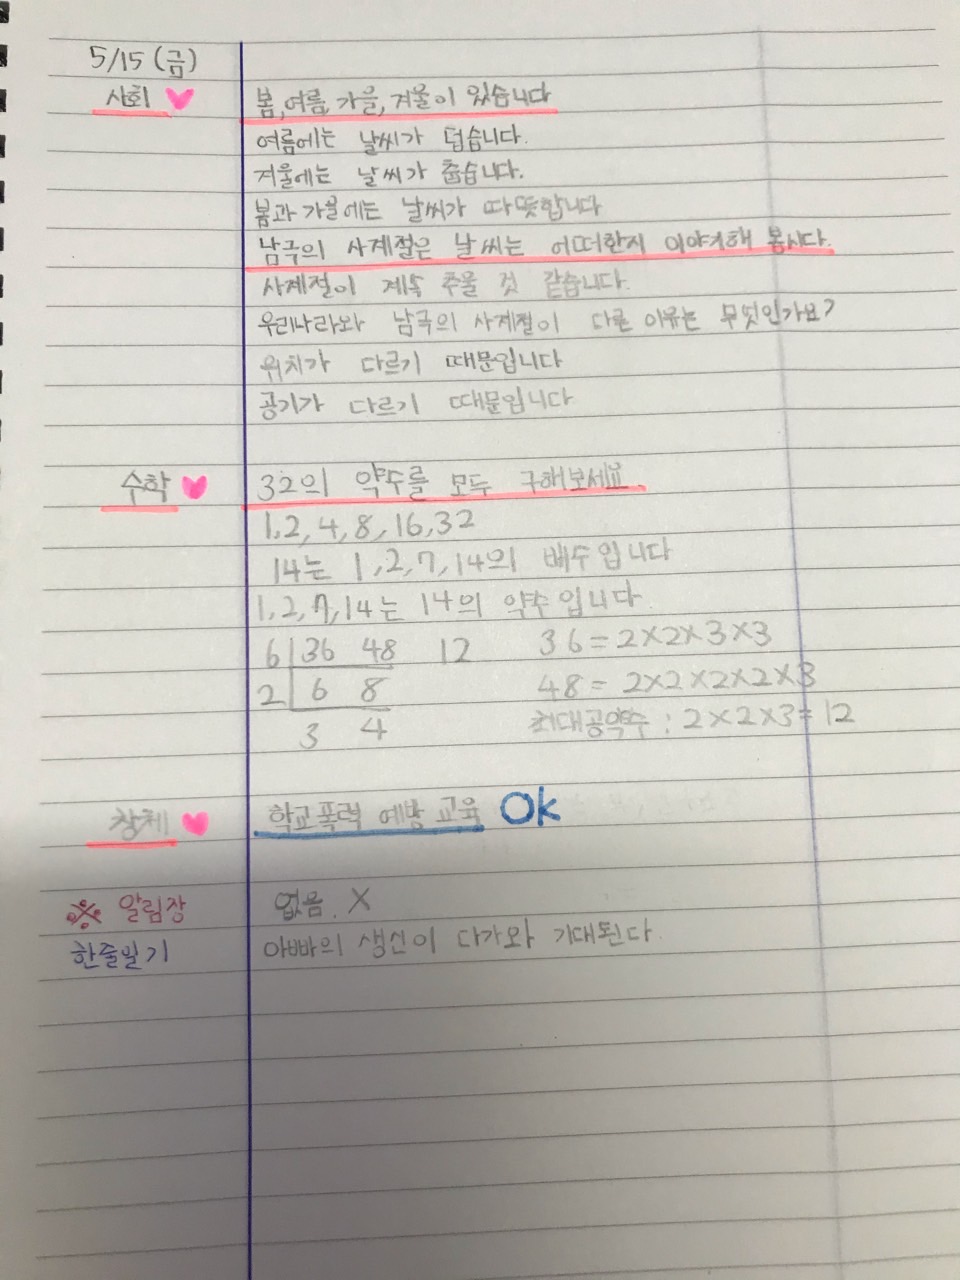 5/15 (금)
사회 봄, 여름, 가을, 겨울이 있습니다
여름에는 날씨가 덥습니다.
겨울에는 날씨가 춥습니다.
봄과 가을에는 날씨가 따뜻합니다
남극의 사계절은 날씨는 어떠한지 이야기해 봅시다.
사계절이 계속 추울 것 같습니다.
우리나라와 남극의 사계절이 다른 이유는 무엇인가요?
위치가 다르기 때문입니다
공기가 다르기 때문입니다
수학 32의 약수를 모두 구해보세요.
1, 2, 4, 8, 16, 32
14는 1, 2, 7, 14의 배수입니다
1, 2, 7, 14는 14의 약수입니다.
6 36 48 12 36 = 2×2×3×3
2 6 8 48 = 2×2×2×2×3
3 4 최대공약수 : 2×2×3=12
창체 학교폭력 예방 교육 Ok
※ 알림장 없음. X
한줄일기 아빠의 생신이 다가와 기대된다.